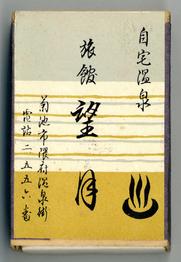 自宅温泉
旅館
望月
菊池市隈府温泉街
電話二五五六番